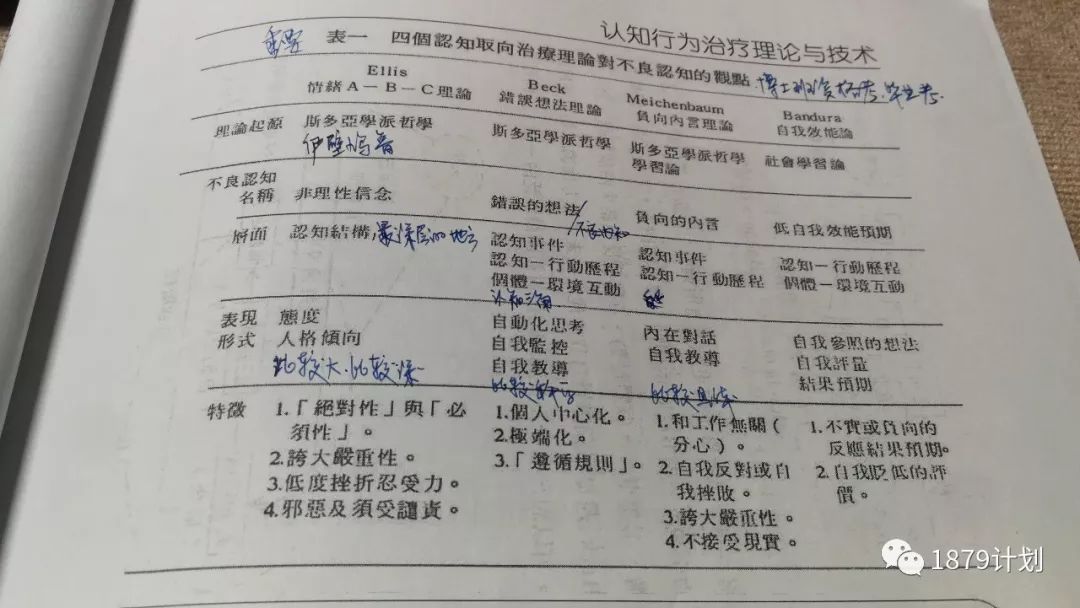 认知行为治疗理论与技术
重要 表一 四個認知取向治療理論對不良認知的觀點
Ellis Beck Meichenbaum Bandura
情緒A－B－C理論 錯誤想法理論 負向內言理論 自我效能論
理論起源 斯多亞學派哲學 斯多亞學派哲學 斯多亞學派哲學 社會學習論
學習論
不良認知
名稱 非理性信念 錯誤的想法 負向的內言 低自我效能預期
層面 認知結構 認知事件 認知事件 認知－行動歷程
認知－行動歷程 認知－行動歷程 個體－環境互動
個體－環境互動
表現 態度 自動化思考 內在對話 自我參照的想法
形式 人格傾向 自我監控 自我教導 自我評量
比较大、比较深 自我教導 結果預期
比较具体
特徵 1.「絕對性」與「必 1.個人中心化。 1.和工作無關（ 1.不實或負向的
須性」。 2.極端化。 分心）。 反應結果預期。
2.誇大嚴重性。 3.「遵循規則」。 2.自我反對或自 2.自我貶低的評
3.低度挫折忍受力。 我挫敗。 價。
4.邪惡及須受譴責。 3.誇大嚴重性。
4.不接受現實。
1879计划